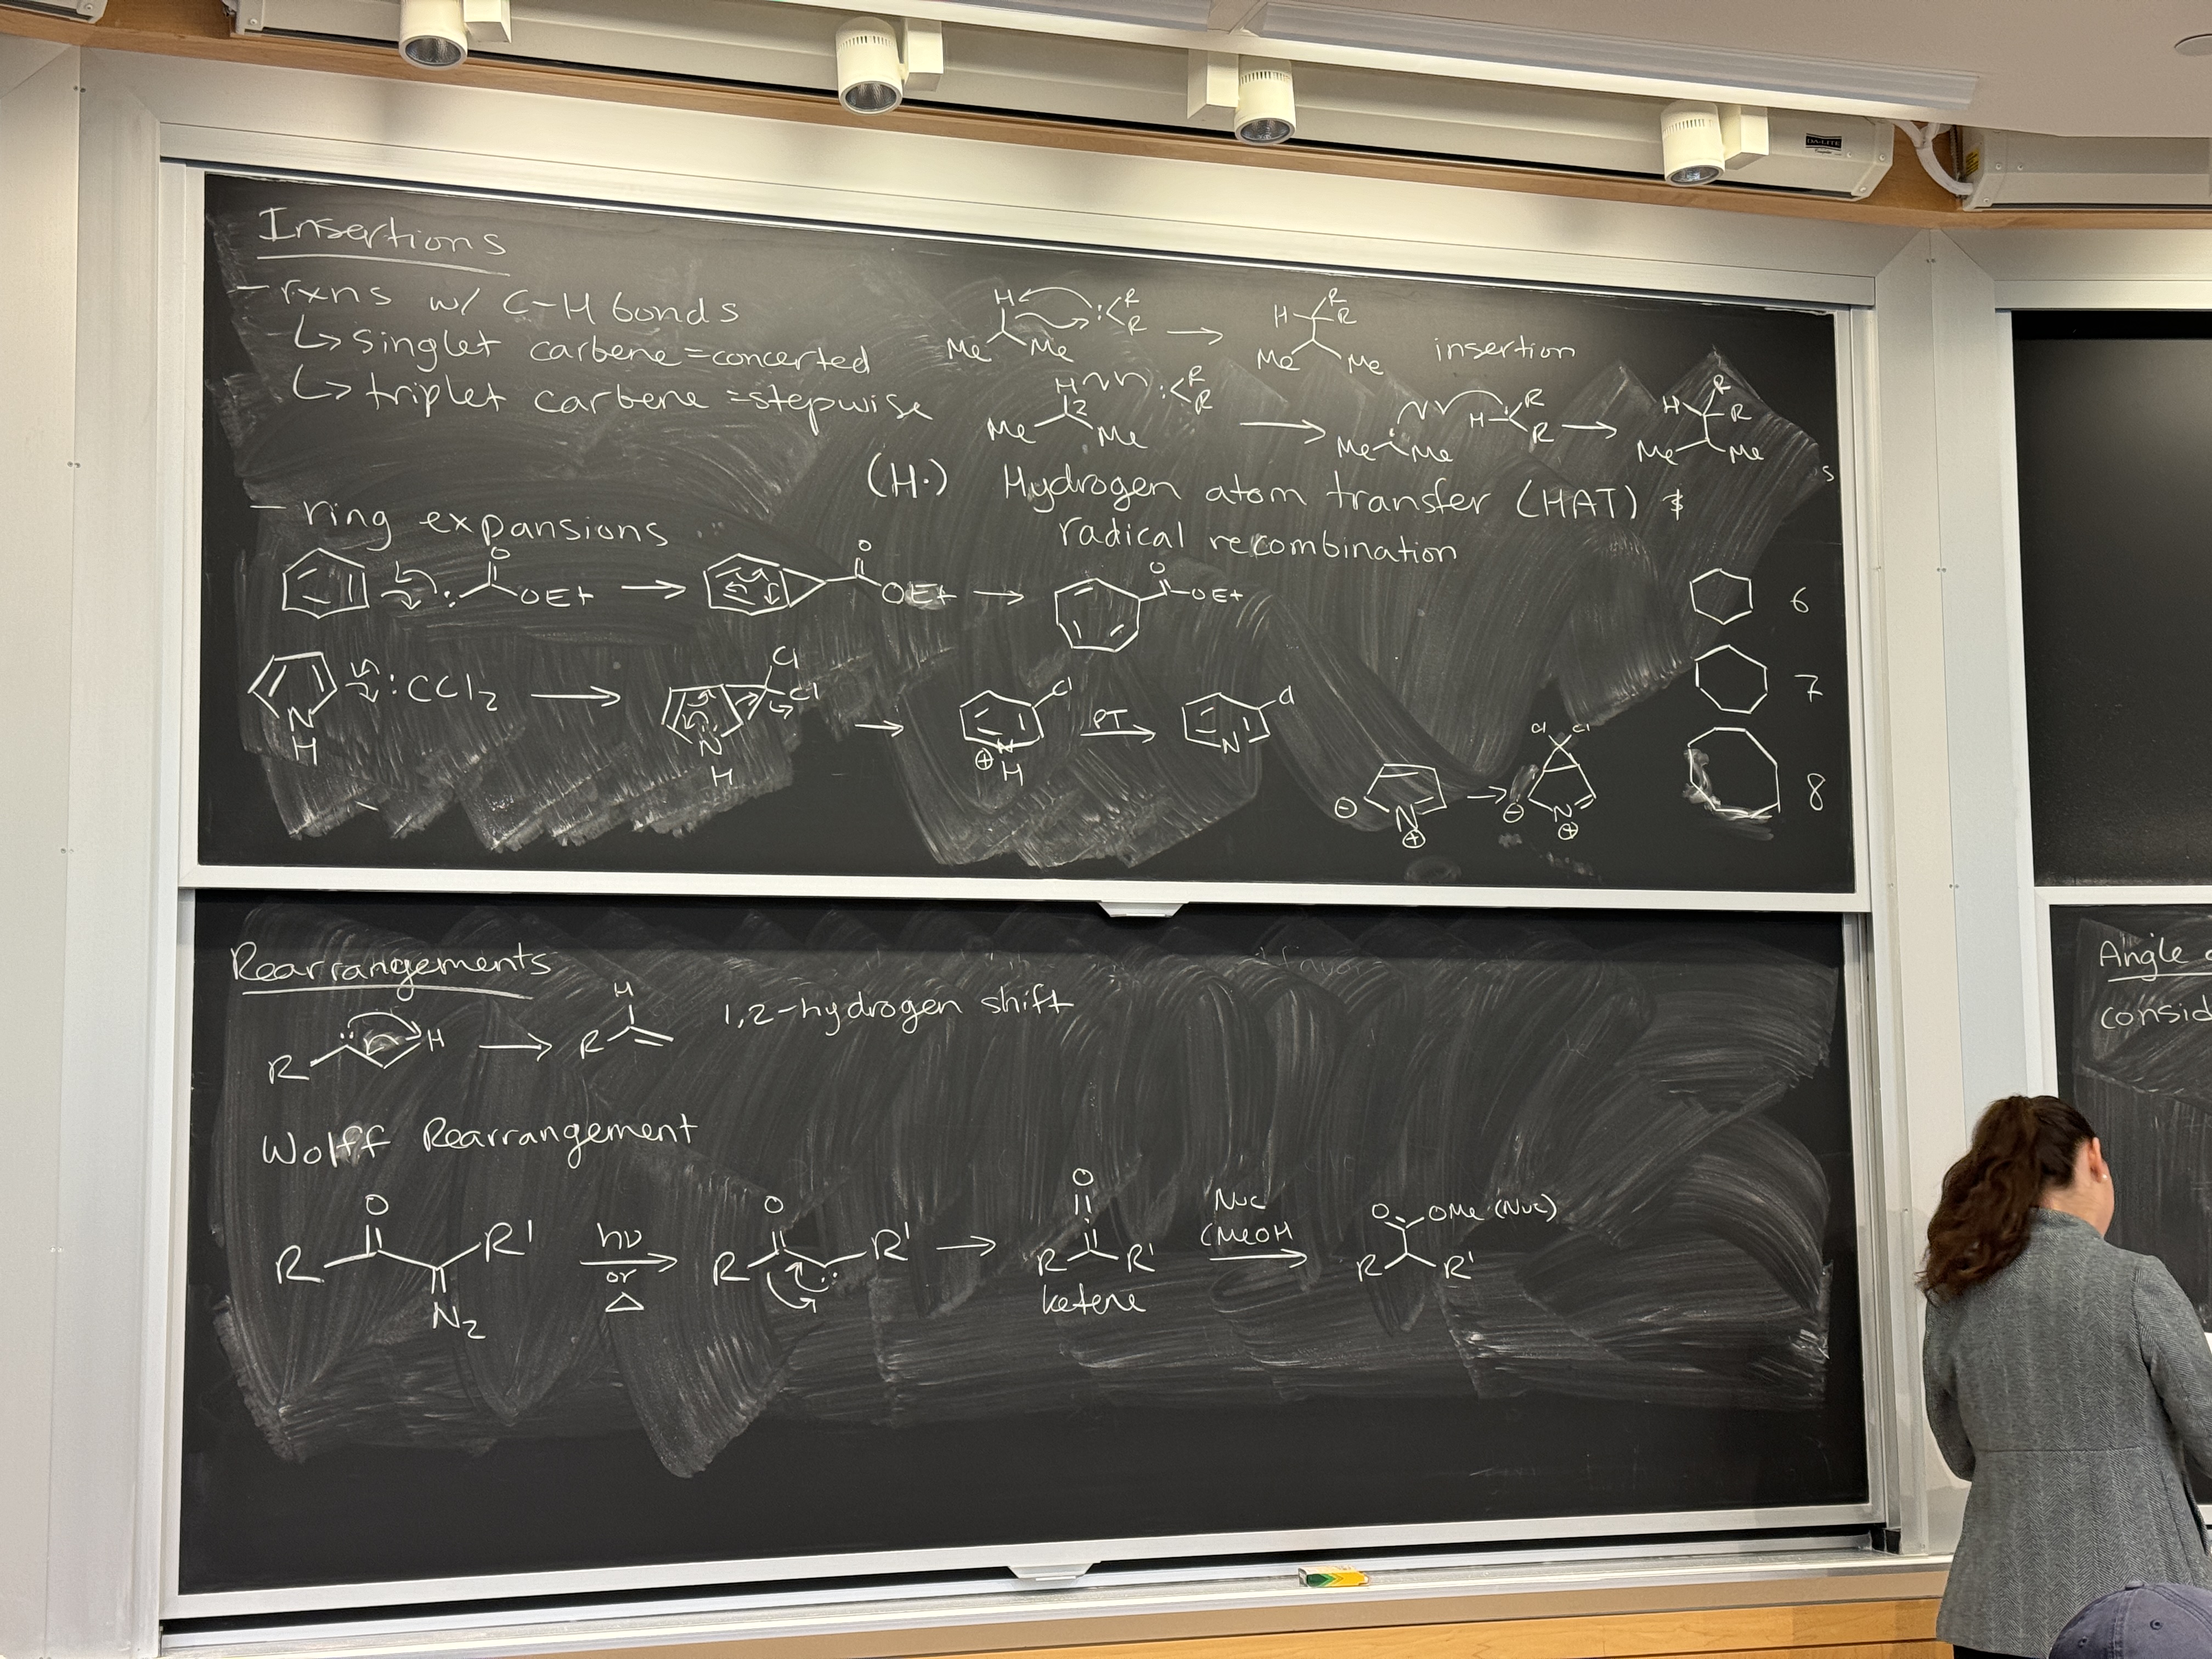 Insertions
- rxns w/ C-H bonds
↳ singlet carbene = concerted
↳ triplet carbene = stepwise
H : R R → H R R
Me Me Me Me insertion
H : R R → H R R → H R R
2
Me Me Me Me Me Me
(H·) Hydrogen atom transfer (HAT) &
radical recombination
- ring expansions
O : OEt → O OEt → O OEt
N H :CCl2 → N H Cl Cl → N H ⊕ Cl PT → N Cl
⊖ N ⊕ → Cl Cl ⊖ N ⊕
6
7
8
Rearrangements
R : H → R H 1,2-hydrogen shift
Wolff Rearrangement
R O R' N2 hν or △ → R O : R' → O R R' Nuc (MeOH → O OMe (Nuc) R R'
ketene
Angle
consid